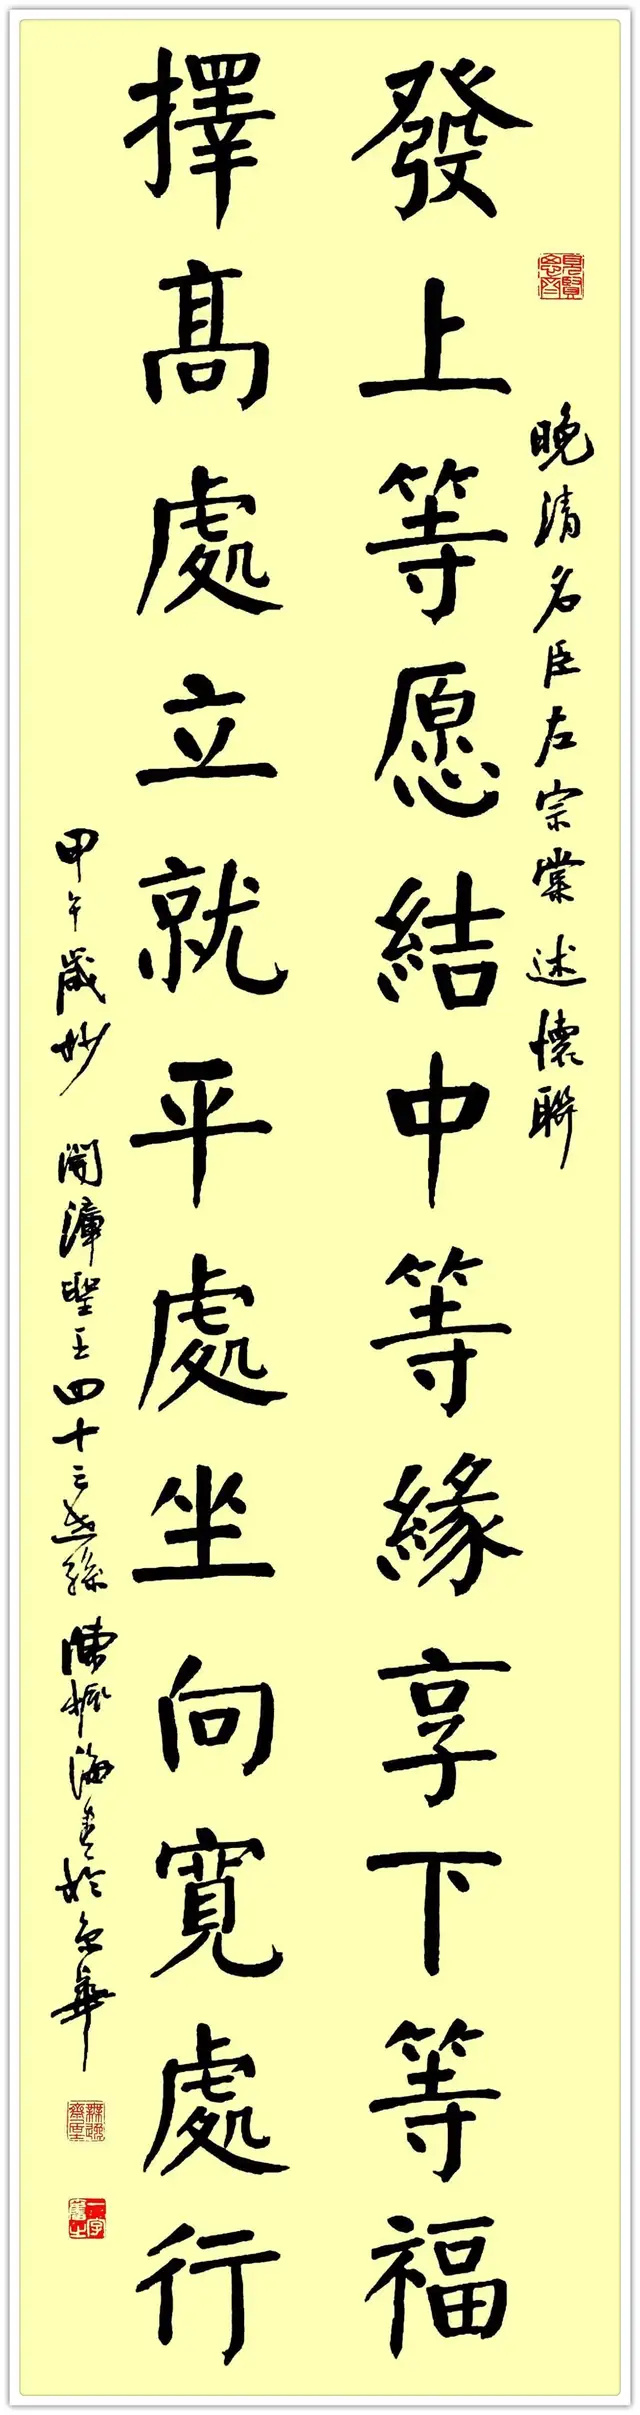 見賢思齊
晚清名臣左宗棠述懷聯
發上等愿結中等緣享下等福
擇髙處立就平處坐向寬處行
甲午歲妙 開漳聖王四十三世孫 陳海書於京華